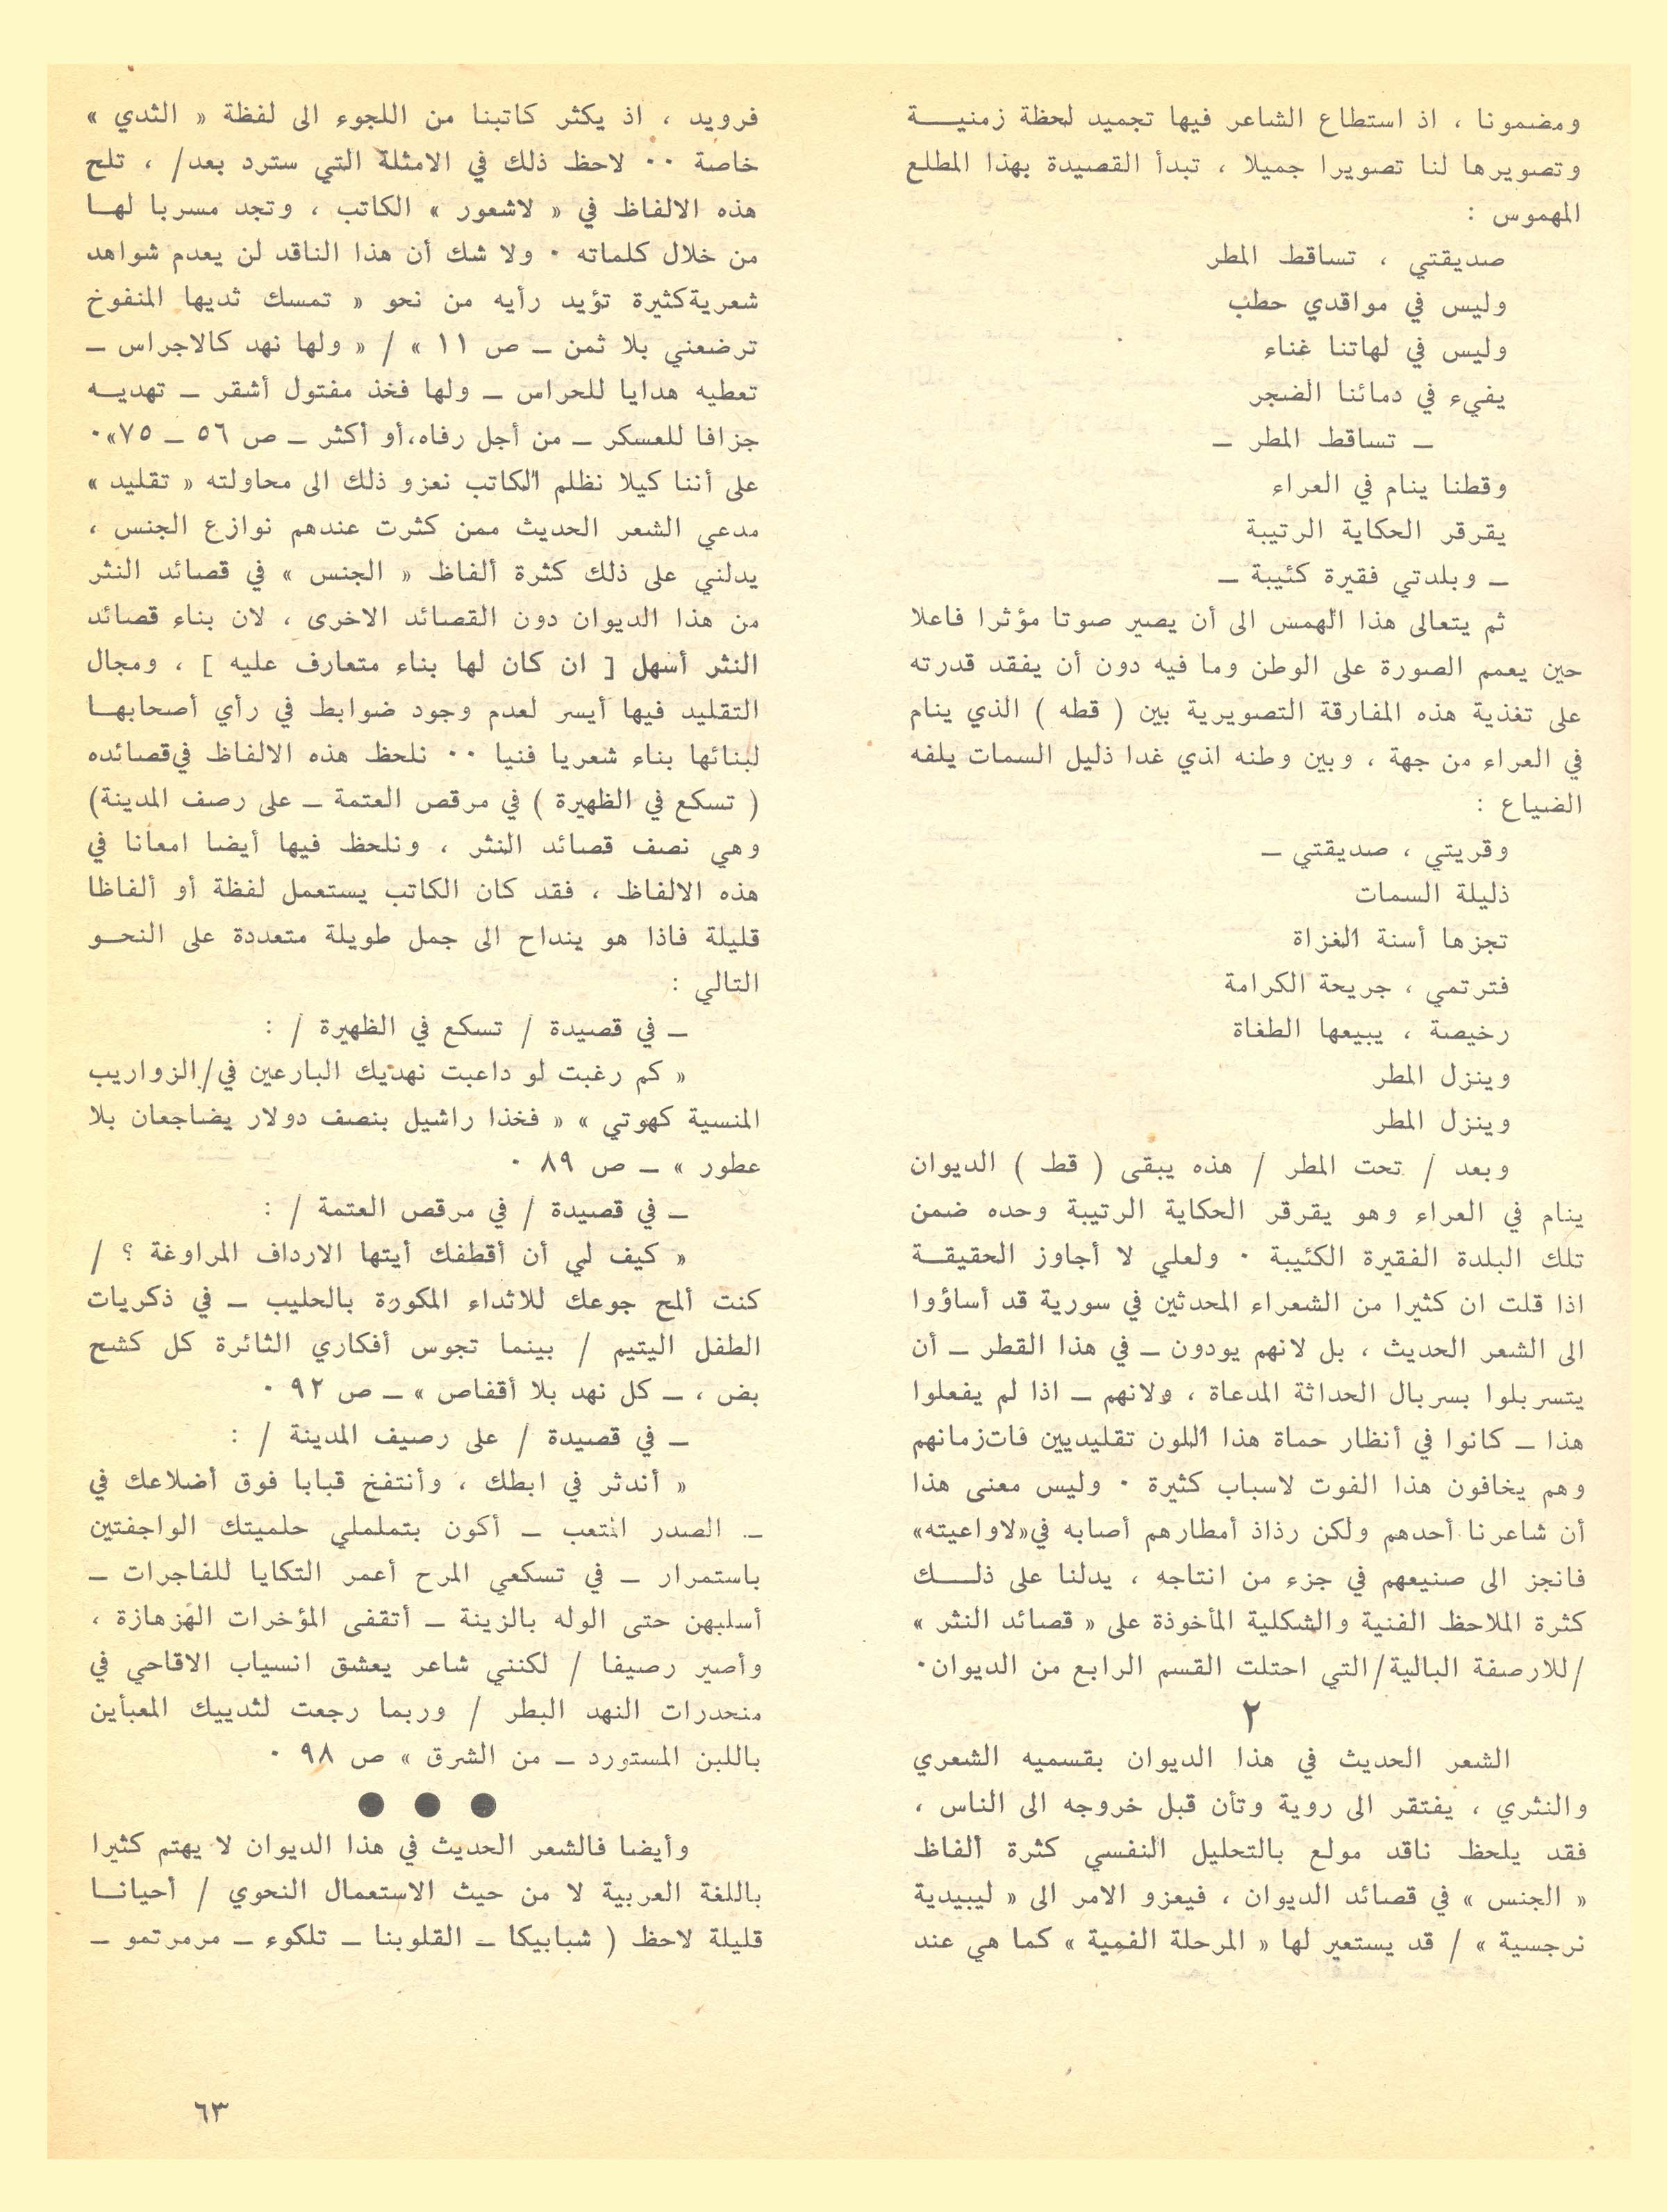 ومضمونا ، اذ استطاع الشاعر فيها تجميد لحظة زمنيـــة
وتصويرها لنا تصويرا جميلا ، تبدأ القصيدة بهذا المطلع
المهموس :
صديقتي ، تساقط المطر
وليس في مواقدي حطب
وليس في لهاتنا غناء
يفيء في دمائنا الضجر
ــ تساقط المطر ــ
وقطنا ينام في العراء
يقرقر الحكاية الرتيبة
ــ وبلدتي فقيرة كئيبة ــ
ثم يتعالى هذا الهمس الى أن يصير صوتا مؤثرا فاعلا
حين يعمم الصورة على الوطن وما فيه دون أن يفقد قدرته
على تغذية هذه المفارقة التصويرية بين ( قطه ) الذي ينام
في العراء من جهة ، وبين وطنه الذي غدا ذليل السمات يلفه
الضياع :
وقريتي ، صديقتي ــ
ذليلة السمات
تجزها أسنة الغزاة
فترتمي ، جريحة الكرامة
رخيصة ، يبيعها الطغاة
وينزل المطر
وينزل المطر
وبعد / تحت المطر / هذه يبقى ( قط ) الديوان
ينام في العراء وهو يقرقر الحكاية الرتيبة وحده ضمن
تلك البلدة الفقيرة الكئيبة ٠ ولعلي لا أجاوز الحقيقـــة
اذا قلت ان كثيرا من الشعراء المحدثين في سورية قد أساؤوا
الى الشعر الحديث ، بل لانهم يودون ــ في هذا القطر ــ أن
يتسربلوا بسربال الحداثة المدعاة ، ولانهم ــ اذا لم يفعلوا
هذا ــ كانوا في أنظار حماة هذا اللون تقليديين فات زمانهم
وهم يخافون هذا الفوت لاسباب كثيرة ٠ وليس معنى هذا
أن شاعرنا أحدهم ولكن رذاذ أمطارهم أصابه في«لاواعيته»
فانجز الى صنيعهم في جزء من انتاجه ، يدلنا على ذلـــك
كثرة الملاحظ الفنية والشكلية المأخوذة على « قصائد النثر »
/للارصفة البالية/التي احتلت القسم الرابع من الديوان٠
٢
الشعر الحديث في هذا الديوان بقسميه الشعري
والنثري ، يفتقر الى روية وتأن قبل خروجه الى الناس ،
فقد يلحظ ناقد مولع بالتحليل النفسي كثرة ألفاظ
« الجنس » في قصائد الديوان ، فيعزو الامر الى « ليبيدية
نرجسية » / قد يستعير لها « المرحلة الفمية » كما هي عند
فرويد ، اذ يكثر كاتبنا من اللجوء الى لفظة « الثدي »
خاصة ٠٠ لاحظ ذلك في الامثلة التي سترد بعد/ ، تلح
هذه الالفاظ في « لاشعور » الكاتب ، وتجد مسربا لهـا
من خلال كلماته ٠ ولا شك أن هذا الناقد لن يعدم شواهد
شعرية كثيرة تؤيد رأيه من نحو « تمسك ثديها المنفوخ
ترضعني بلا ثمن ــ ص ١١ » / « ولها نهد كالاجراس ــ
تعطيه هدايا للحراس ــ ولها فخذ مفتول أشقر ــ تهديــه
جزافا للعسكر ــ من أجل رفاه،أو أكثر ــ ص ٥٦ ــ ٧٥»٠
على أننا كيلا نظلم الكاتب نعزو ذلك الى محاولته « تقليد »
مدعي الشعر الحديث ممن كثرت عندهم نوازع الجنس ،
يدلني على ذلك كثرة ألفاظ « الجنس » في قصائد النثر
من هذا الديوان دون القصائد الاخرى ، لان بناء قصائد
النثر أسهل [ ان كان لها بناء متعارف عليه ] ، ومجال
التقليد فيها أيسر لعدم وجود ضوابط في رأي أصحابهـا
لبنائها بناء شعريا فنيا ٠٠ نلحظ هذه الالفاظ في قصائده
( تسكع في الظهيرة ) في مرقص العتمة ــ على رصف المدينة)
وهي نصف قصائد النثر ، ونلحظ فيها أيضا امعانا في
هذه الالفاظ ، فقد كان الكاتب يستعمل لفظة أو ألفاظا
قليلة فاذا هو ينداح الى جمل طويلة متعددة على النحـو
التالي :
ــ في قصيدة / تسكع في الظهيرة / :
« كم رغبت لو داعبت نهديك البارعين في/الزواريب
المنسية كهوتي » « فخذا راشيل بنصف دولار يضاجعان بلا
عطور » ــ ص ٨٩ ٠
ــ في قصيدة / في مرقص العتمة / :
« كيف لي أن أقطفك أيتها الارداف المراوغة ؟ /
كنت ألمح جوعك للاثداء المكورة بالحليب ــ في ذكريات
الطفل اليتيم / بينما تجوس أفكاري الثائرة كل كشح
بض ، ــ كل نهد بلا أقفاص » ــ ص ٩٢ ٠
ــ في قصيدة / على رصيف المدينة / :
« أندثر في ابطك ، وأنتفخ قبابا فوق أضلاعك في
ــ الصدر المتعب ــ أكون بتململي حلميتك الواجفتين
باستمرار ــ في تسكعي المرح أعمر التكايا للفاجرات ــ
أسلبهن حتى الوله بالزينة ــ أتقفى المؤخرات الهزهازة ،
وأصير رصيفا / لكنني شاعر يعشق انسياب الاقاحي في
منحدرات النهد البطر / وربما رجعت لثدييك المعبأين
باللبن المستورد ــ من الشرق » ص ٩٨ ٠
● ● ●
وأيضا فالشعر الحديث في هذا الديوان لا يهتم كثيرا
باللغة العربية لا من حيث الاستعمال النحوي / أحيانـا
قليلة لاحظ ( شبابيكا ــ القلوبنا ــ تلكوء ــ مرمرتمو ــ
٦٣